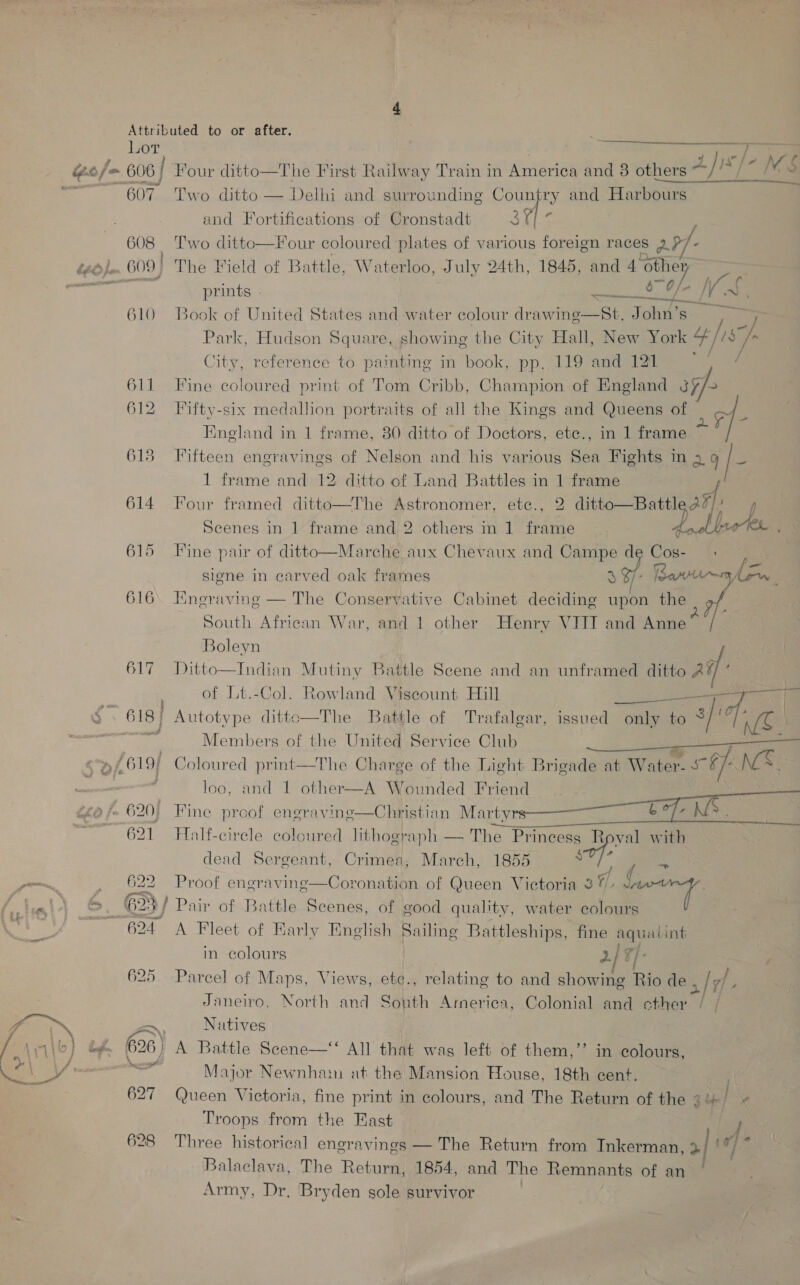 4
Attributed to or after.
Lot
606 Four ditto—The First Railway Train in America and 3 others
607 Two ditto — Delhi and surrounding Country and Harbours
and Fortifications of Cronstadt
608 Two ditto—Four coloured plates of various foreign races
609 The Field of Battle, Waterloo, July 24th, 1845, and 4 other
prints
610 Book of United States and water colour drawing—St. John's
Park, Hudson Square, showing the City Hall, New York
City, reference to painting in book, pp. 119 and 121
611 Fine coloured print of Tom Cribb, Champion of England
612 Fifty-six medallion portraits of all the Kings and Queens of
England in 1 frame, 30 ditto of Doctors, etc., in 1 frame
613 Fifteen engravings of Nelson and his various Sea Fights in
1 frame and 12 ditto of Land Battles in 1 frame
614 Four framed ditto—The Astronomer, etc., 2 ditto—Battle
Scenes in 1 frame and 2 others in 1 frame
615 Fine pair of ditto—Marche aux Chevaux and Campe de Cos-
signe in carved oak frames
616 Engraving — The Conservative Cabinet deciding upon the
South African War, and 1 other Henry VIII and Anne
Boleyn
617 Ditto—Indian Mutiny Battle Scene and an unframed ditto
of Lt.-Col. Rowland Viscount Hill
618 Autotype ditto—The Battle of Trafalgar, issued only to
Members of the United Service Club
619 Coloured print—The Charge of the Light Brigade at Water-
loo, and 1 other—A Wounded Friend
620 Fine proof engraving—Christian Martyrs
621 Half-circle coloured lithograph — The Princess Royal with
dead Sergeant, Crimea, March, 1855
622 Proof engraving—Coronation of Queen Victoria
623 Pair of Battle Scenes, of good quality, water colours
624 A Fleet of Early English Sailing Battleships, fine aquatint
in colours
625 Parcel of Maps, Views, etc., relating to and showing Rio de
Janeiro, North and South America, Colonial and other
Natives
626 A Battle Scene—“ All that was left of them,” in colours,
Major Newnham at the Mansion House, 18th cent.
627 Queen Victoria, fine print in colours, and The Return of the
Troops from the East
628 Three historical engravings — The Return from Inkerman,
Balaclava, The Return, 1854, and The Remnants of an
Army, Dr. Bryden sole survivor